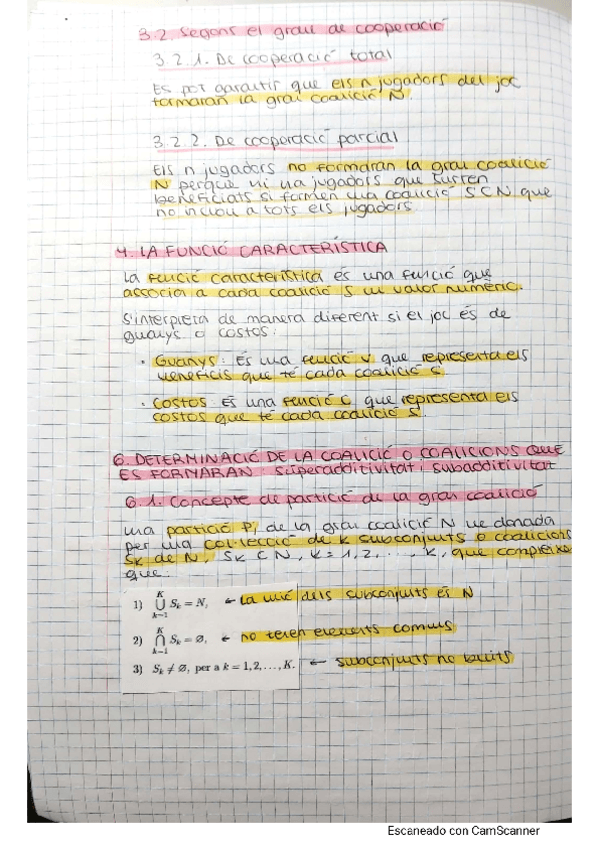 3.2. Segons el grau de cooperació
3.2.1. De cooperació total
Es pot garantir que els n jugadors del joc
formaran la gran coalició N.
3.2.2. De cooperació parcial
Els n jugadors no formaran la gran coalició
N perquè hi ha jugadors que surten
beneficiats si formen una coalició S⊂N que
no inclou a tots els jugadors.
4. LA FUNCIÓ CARACTERÍSTICA
La funció característica és una funció que
associa a cada coalició S un valor numèric.
S'interpreta de manera diferent si el joc és de
guanys o costos:
· Guanys: És una funció v que representa els
beneficis que té cada coalició S.
· Costos: És una funció C que representa els
costos que té cada coalició S.
6. DETERMINACIÓ DE LA COALICIÓ O COALICIONS QUE
ES FORMARAN: superadditivitat i subadditivitat
6.1. Concepte de partició de la gran coalició
Una partició Pi de la gran coalició N ve donada
per una col·lecció de K subconjunts o coalicions
Sk de N, Sk ⊂ N, k=1,2,...,K, que compleixe
que:
1) ⋃ k=1 K Sk = N, ← La unió dels subconjunts és N
2) ⋂ k=1 K Sk = ∅, ← no tenen elements comuns
3) Sk ≠ ∅, per a k = 1, 2, ..., K. ← subconjunts no buits
Escaneado con CamScanner